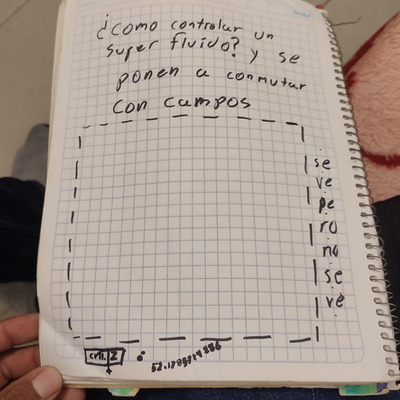 ¿como controlar un
super fluido? y se
ponen a conmutar
con campos
se
ve
pe
ro
no
se
ve